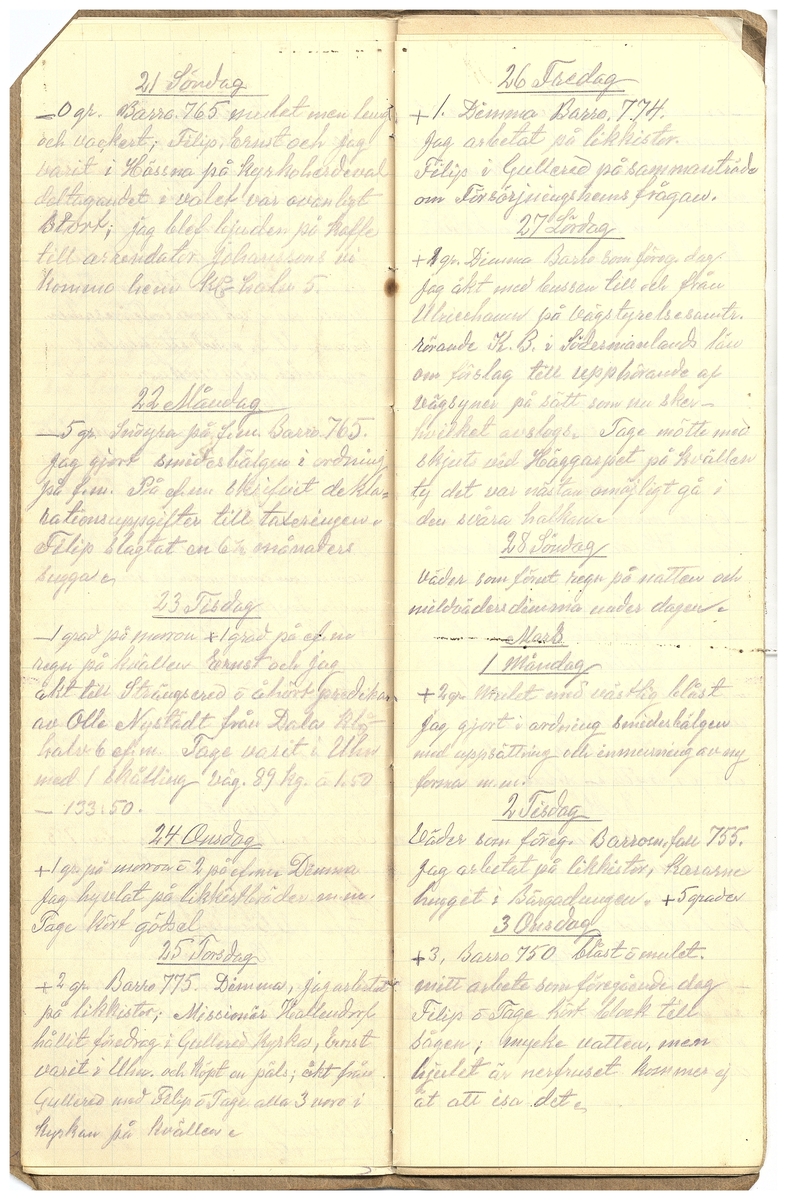 21 Söndag
—0 gr. Barro. 765 mulet men lungt
och vackert; Filip, Ernst och jag
varit i Hössna på Kyrkoherdeval
deltagandet i valet var ovanligt
stort; jag blef bjuden på Kaffe
till arrendator Johanssons vi
kommo hem Kl halv 5.
22 Måndag
—5 gr. Snöyra på f.m. Barro. 765.
Jag gjort smidesbälgen i ordning
på f.m. På ef.m. skrifvit dekla-
rationsuppgifter till taxeringen.
Filip slagtat en 6½ månaders
sugga.
23 Tisdag
—1 grad på morron +1 grad på ef.m
regn på kvällen Ernst och jag
åkt till Strängsered o åhört predikan
av Olle Nystedt från Dala Kl.
halv 6 ef.m. Tage varit i Uhn
med 1 skålling väg. 89 kg. á 1.50
— 133:50.
24 Onsdag
+1 gr. på morron o 2 på ef.m. Dimma
Jag hyvlat på likkistbräder m.m.
Tage kört gödsel
25 Torsdag
+2 gr. Barro 775. Dimma, jag arbetat
på likkistor; Missionär Hallendorf
hållit föredrag i Gullered Kyrka, Ernst
varit i Uhn. och köpt en päls; åkt från
Gullered med Filip o Tage alla 3 voro i
Kyrkan på kvällen.
26 Fredag
+1. Dimma Barro. 774.
Jag arbetat på likkistor.
Filip i Gullered på sammanträde
om Försörjningshemsfrågan.
27 Lördag
+2 gr. Dimma Barro som föreg. dag.
Jag åkt med bussen till och från
Ulricehamn på Vägstyrelsesamtr.
rörande K. B. i Södermanlands län
om förslag till upphörande af
Vägsyner på sätt som nu sker —
hvilket avslogs. Tage mötte med
skjuts vid Häggarpet på kvällen
ty det var nästan omöjligt gå i
den svåra halkan.
28 Söndag
Väder som förut regn på natten och
mildvädersdimma under dagen.
Mars
1 Måndag
+2 gr Mulet med västlig blåst
Jag gjort i ordning smidesbälgen
med uppsättning och inmurning av ny
forma m.m.
2 Tisdag
Väder som föreg. Barrom. fall 755.
Jag arbetat på likkistor, Kararne
hugget i Bärgadungen. +5 grader
3 Onsdag
+3, Barro 750 blåst o mulet.
mitt arbete som föregående dag
Filip o Tage kört block till
sågen; mycke vatten, men
hjulet är nerfruset kommer ej
åt att isa det.